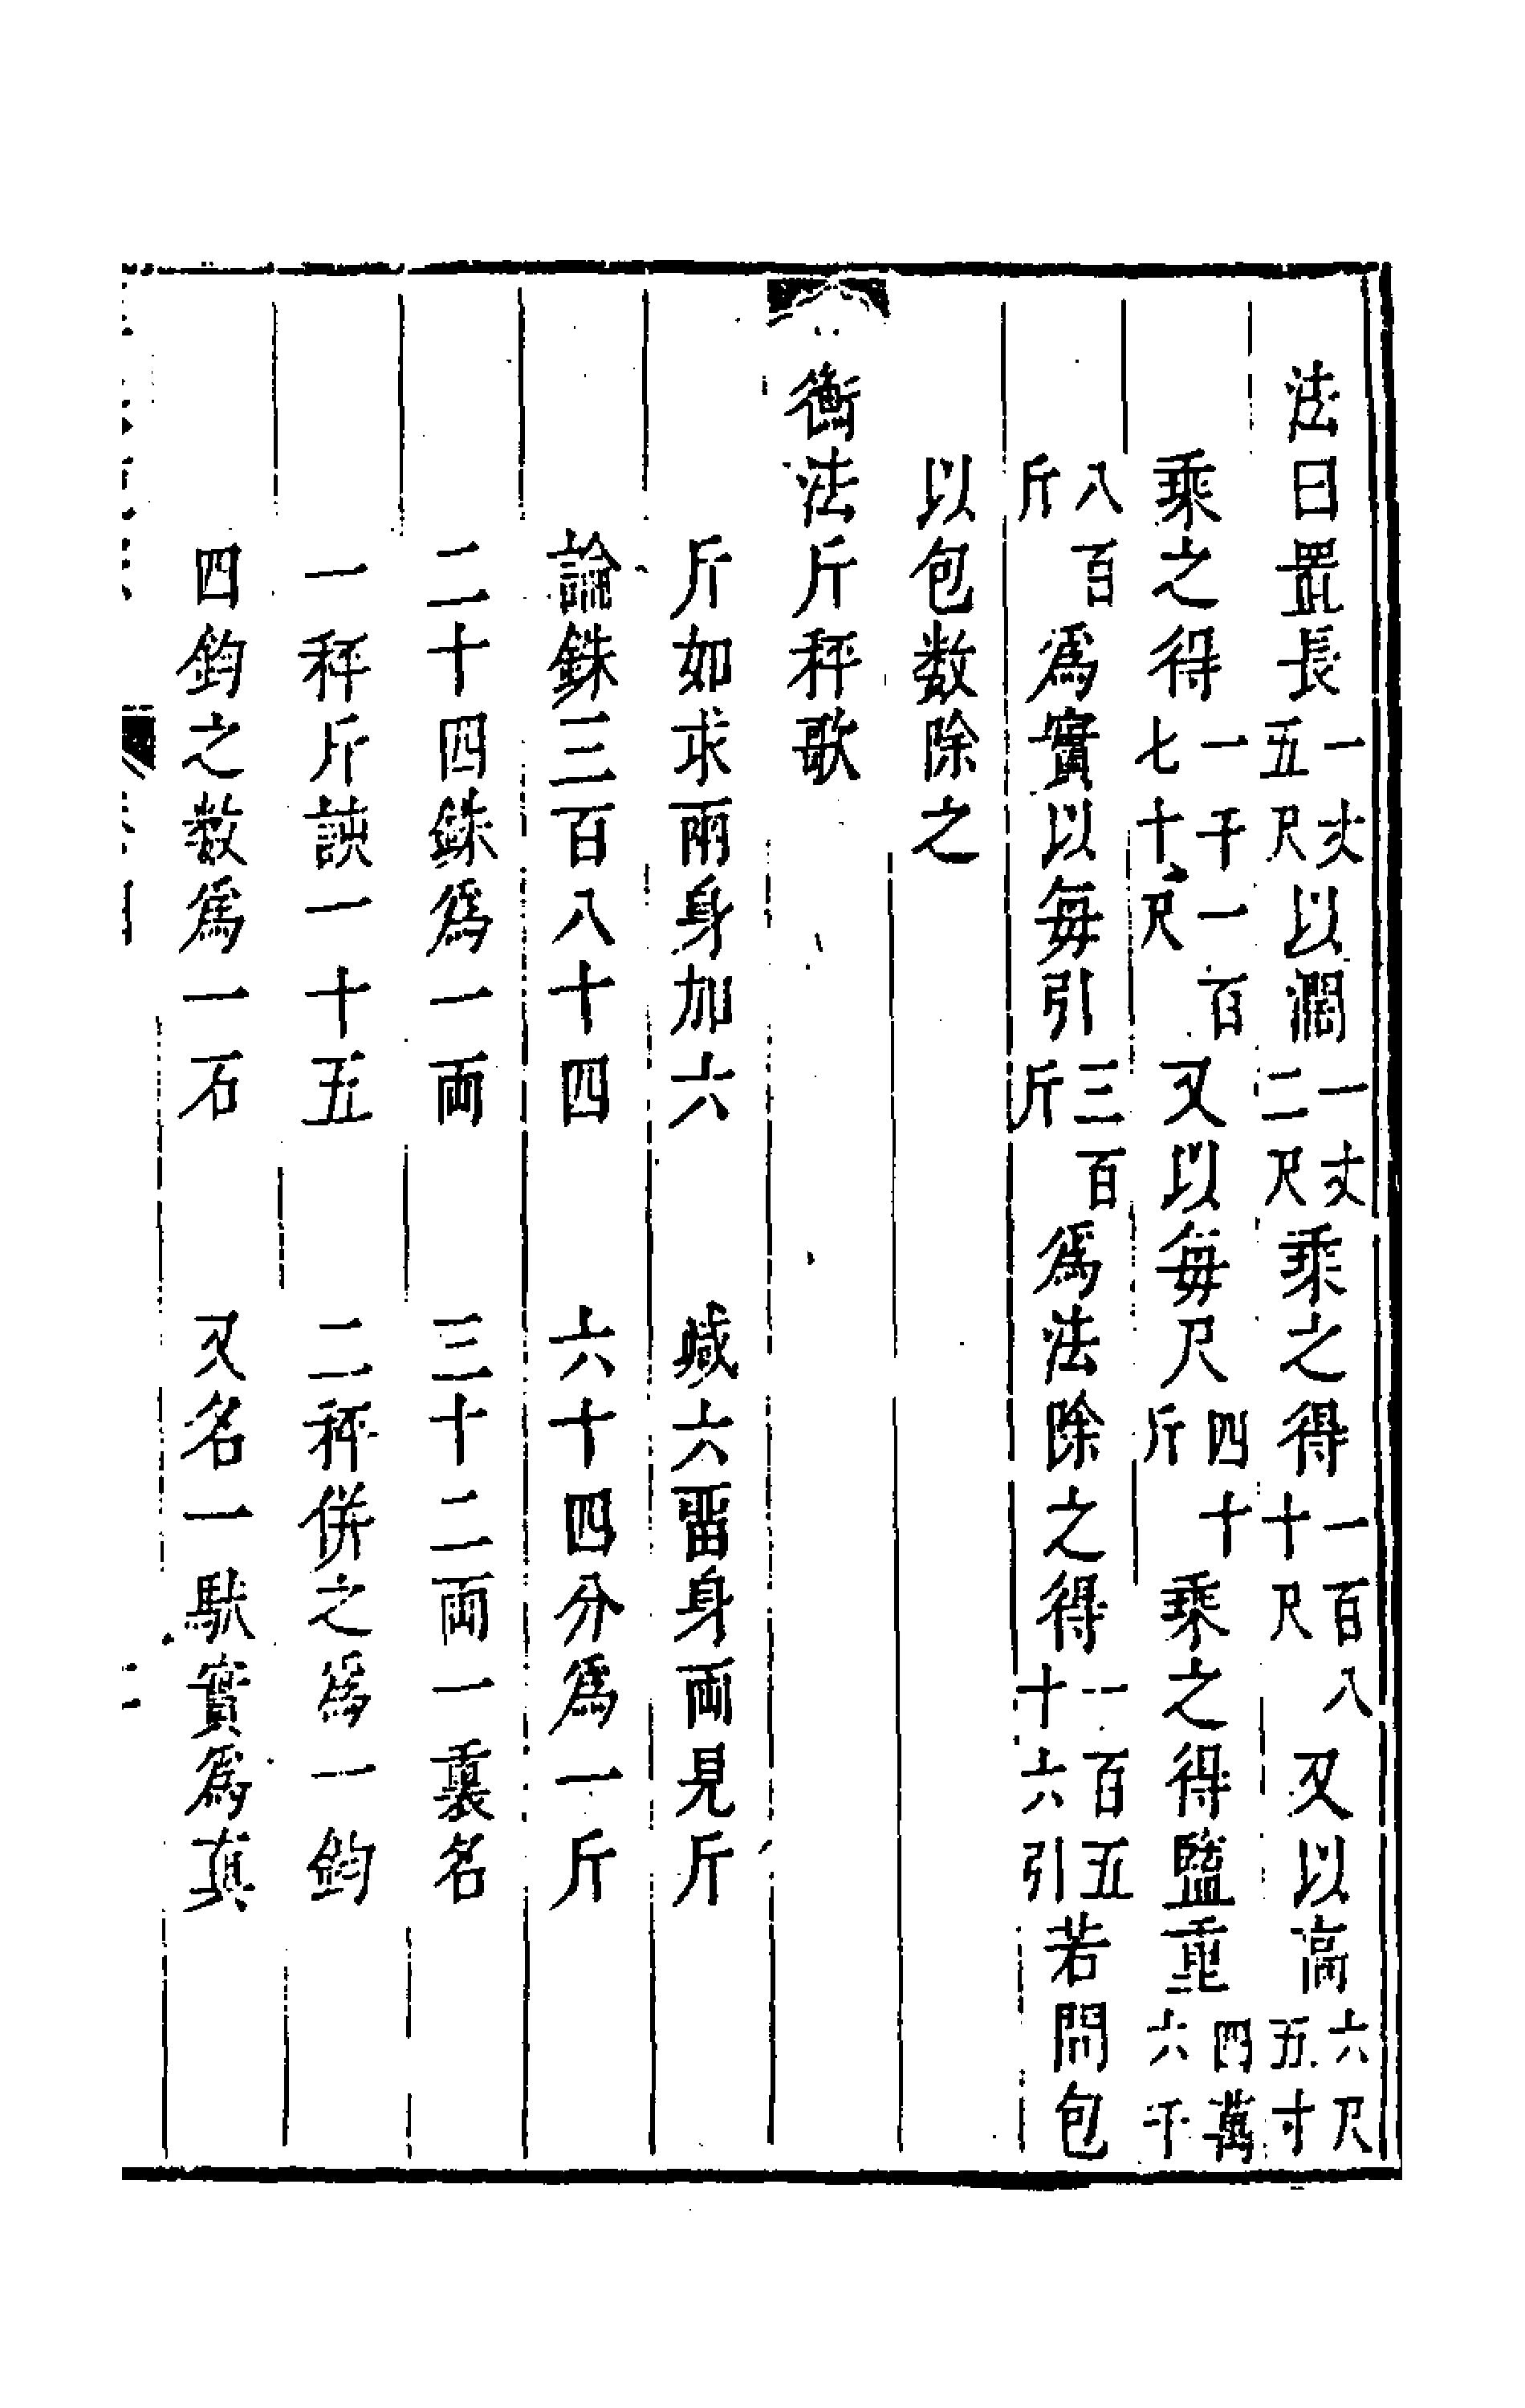 法曰置長一丈五尺以濶一丈二尺乘之得一百八十尺又以高六尺五寸
乘之得一千一百七十尺又以每尺四十斤乘之得鹽重四萬六千
八百斤爲實以每引三百斤爲法除之得一百五十六引若問包
以包数除之
衡法斤秤歌
斤如求兩身加六 減六留身両見斤
論銖三百八十四 六十四分爲一斤
二十四銖爲一両 三十二両一裹名
一秤斤該一十五 二秤併之爲一鈞
四鈞之数爲一石 又名一馱實爲真